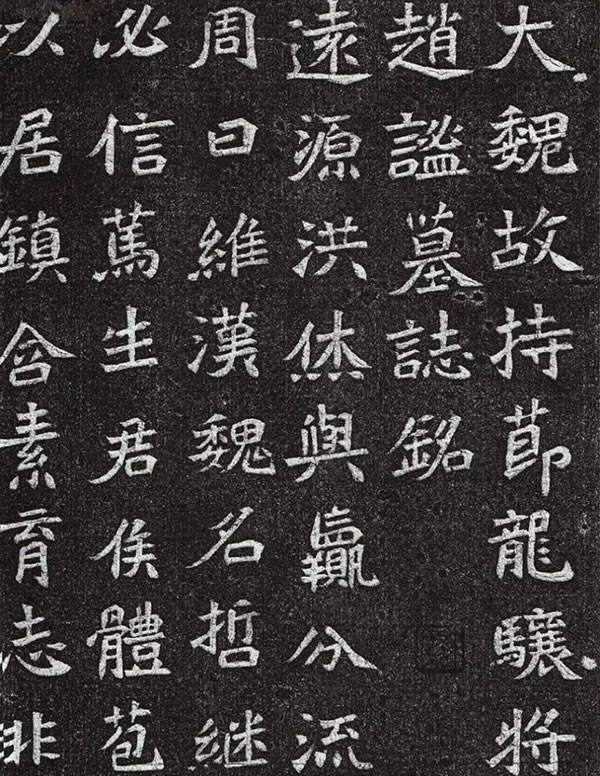 大魏故持莭龍驤將
趙謐墓誌銘
遠源洪烋與羸分流
周曰維漢魏名哲継
必信䔍生君侯體苞
以居鎮含素育志非